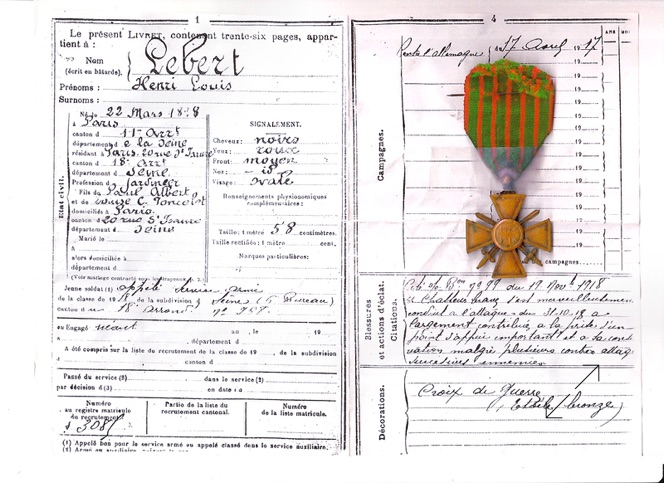 1
Le présent Livret, contenant trente-six pages, appar-
tient à :
Nom
(écrit en bâtarde). Lebert
Prénoms : Henri Louis
Surnoms :
Né le 22 Mars 1898
à Paris
canton d 11e Arrt
département d e la Seine
résidant à Paris. 20 rue St Isaure
canton d 18e arrt
département d Seine
Profession d Jardinier
Fils de Paul Albert
et de
domiciliés à Paris
canton d 20 rue St Isaure
département d Seine
Marié le
à
alors domiciliée à
département d
État civil.
SIGNALEMENT.
Cheveux: noirs
Yeux: roux
Front: moyen
Nez:
Visage: ovale
Renseignements physionomiques
complémentaires :
Taille: 1 mètre 58 centimètres.
Taille rectifiée: 1 mètre cent.
Marques particulières:
Jeune soldat (1) appelé service armé
de la classe de 1918 de la subdivision d Seine (6 Bureau)
canton d u 18e arrond. no 767
ou Engagé néant le 19
à
A été compris sur la liste du recrutement de la classe de 19 de la subdivision
d canton d
Passé du service (2) dans le service (2)
par décision d (3) en date du
Numéro
au registre matricule
du recrutement.
Partie de la liste du
recrutement cantonal.
Numéro
de la liste matricule.
(1) Appelé bon pour le service armé ou appelé classé dans le service auxiliaire.
4
Campagnes.
Contre l'allemagne du 17 Avril 1917
19
campagnes.
Blessures
et actions d'éclat.
Citations.
Cité 99 du 17 Novb 1918
Chasseur s'est merveilleusement
conduit à l'attaque du 31.10.18 a
largement contribué à la prise d'un
point d'appui important et à sa con
malgré plusieurs contre attaq
successives ennemies
Décorations.
Croix de Guerre
Etoile (bronze)